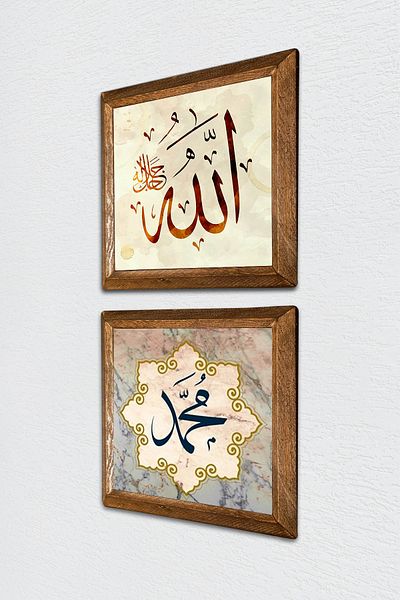 الله
جل جلاله
محمد